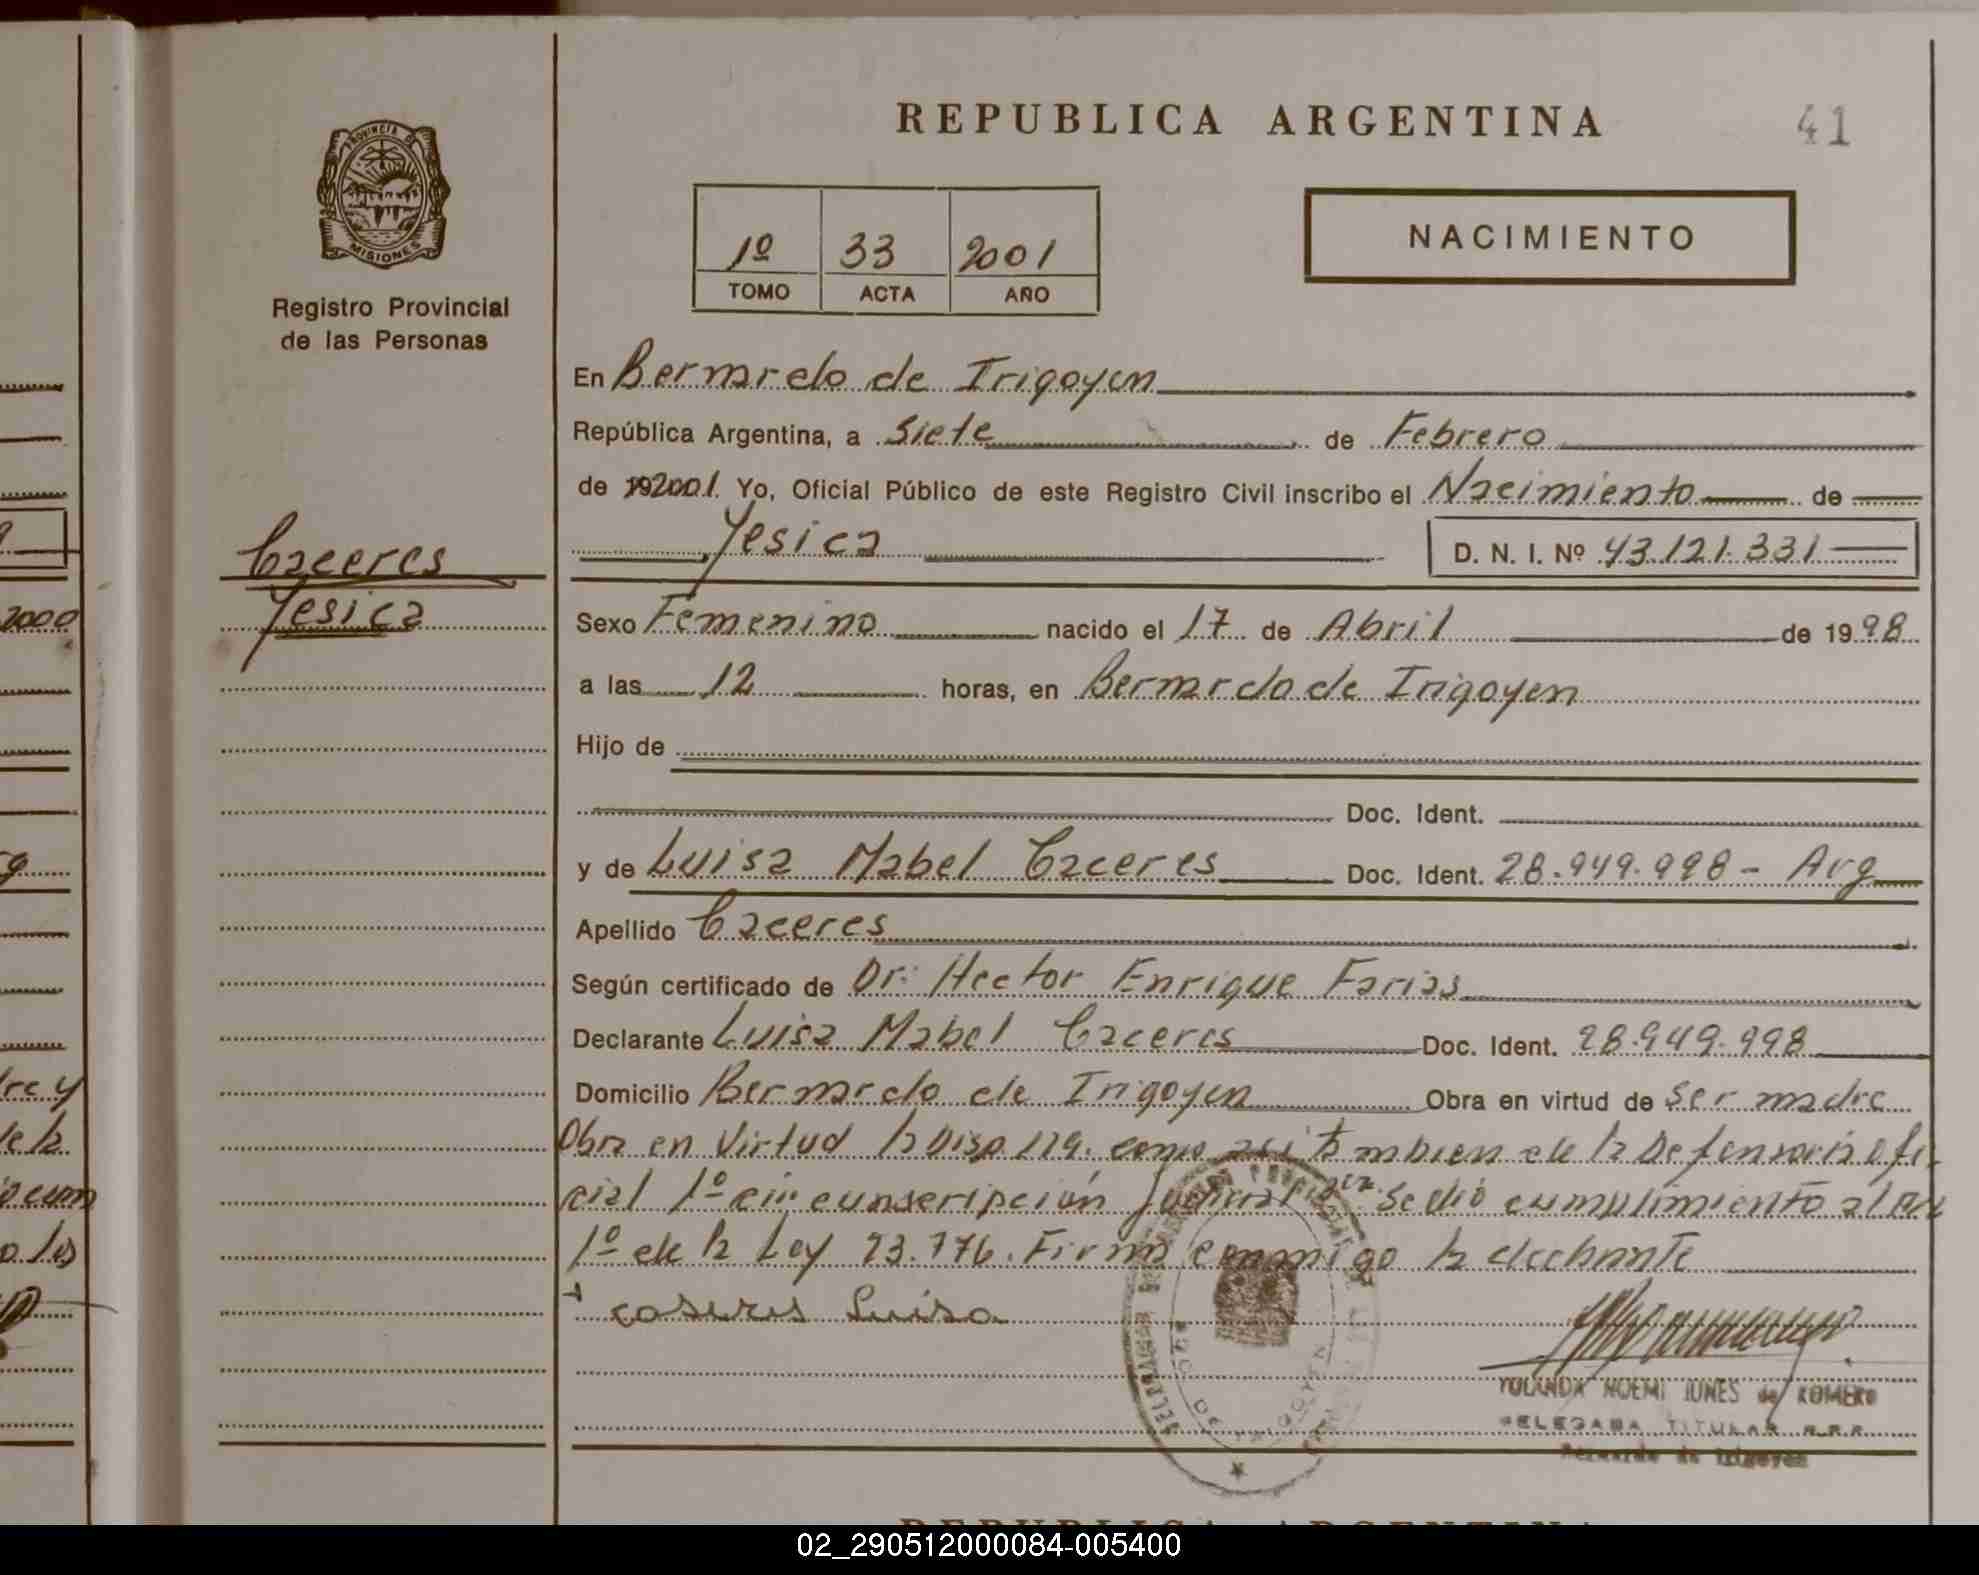 REPUBLICA ARGENTINA
41
PROVINCIA DE
MISIONES
Registro Provincial
de las Personas
1º 33 2001
TOMO ACTA AÑO
NACIMIENTO
En Bernardo de Irigoyen
República Argentina, a Siete de Febrero
de 192001. Yo, Oficial Público de este Registro Civil inscribo el Nacimiento de
Yesica D. N. I. Nº 43.121.331
Caceres
Yesica
Sexo Femenino nacido el 17 de Abril de 1998
a las 12 horas, en Bernardo de Irigoyen
Hijo de
Doc. Ident.
y de Luisa Mabel Caceres Doc. Ident. 28.949.998 - Arg
Apellido Caceres
Según certificado de Dr: Hector Enrique Farias
Declarante Luisa Mabel Caceres Doc. Ident. 28.949.998
Domicilio Bernardo de Irigoyen Obra en virtud de ser madre
Obra en Virtud la Disp 119. como asi tambien de la Defensoria Ofi-
cial 1º circunscripción Judicial Se dió cumplimiento al Art
1º de la Ley 23.776. Firma conmigo la declarante
caseres Luisa
YOLANDA NOEMI de ROMERO
DELEGADA TITULAR R.P.P.
Bernardo de Irigoyen
2000
02_290512000084-005400